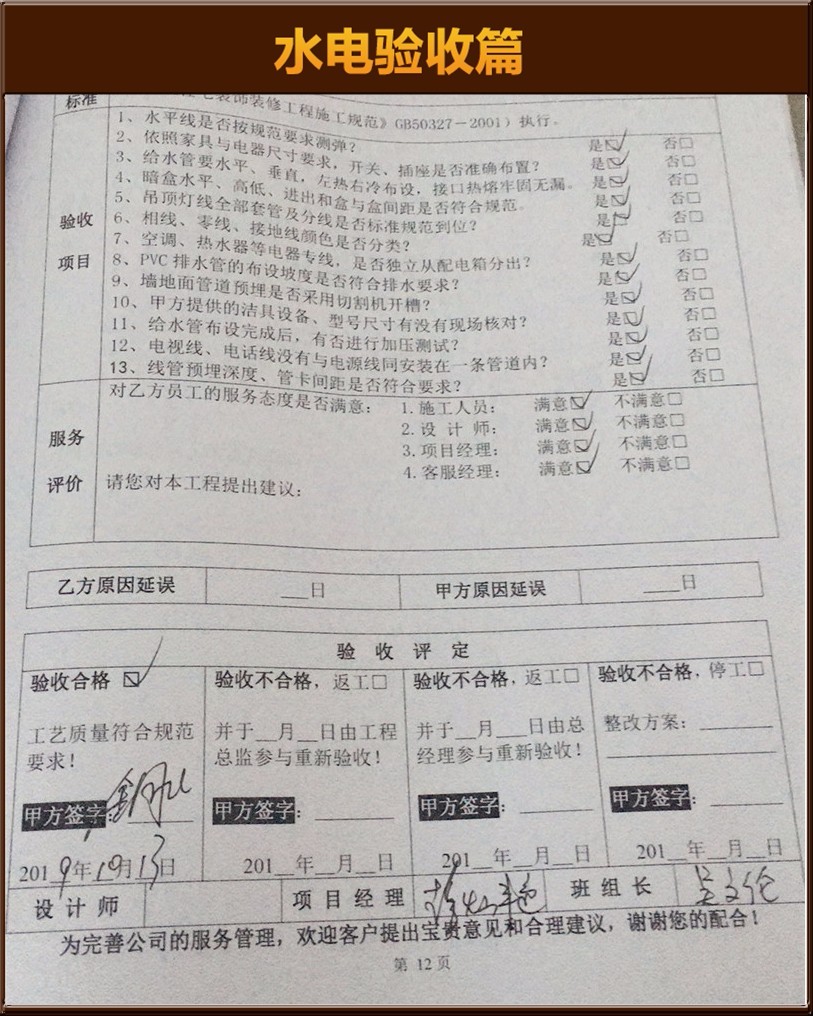 水电验收篇
标准
装饰装修工程施工规范》GB50327－2001）执行。
验收
项目
1、水平线是否按规范要求测弹？ 是☑ 否□
2、依照家具与电器尺寸要求，开关、插座是否准确布置？ 是☑ 否□
3、给水管要水平、垂直，左热右冷布设，接口热熔牢固无漏。 是☑ 否□
4、暗盒水平、高低、进出和盒与盒间距是否符合规范。 是☑ 否□
5、吊顶灯线全部套管及分线是否标准规范到位？ 是☑ 否□
6、相线、零线、接地线颜色是否分类？ 是☑ 否□
7、空调、热水器等电器专线，是否独立从配电箱分出？ 是☑ 否□
8、PVC 排水管的布设坡度是否符合排水要求？ 是☑ 否□
9、墙地面管道预埋是否采用切割机开槽？ 是☑ 否□
10、甲方提供的洁具设备、型号尺寸有没有现场核对？ 是☑ 否□
11、给水管布设完成后，有否进行加压测试？ 是☑ 否□
12、电视线、电话线没有与电源线同安装在一条管道内？ 是☑ 否□
13、线管预埋深度、管卡间距是否符合要求？ 是☑ 否□
服务
评价
对乙方员工的服务态度是否满意： 1.施工人员： 满意☑ 不满意□
2.设 计 师： 满意☑ 不满意□
3.项目经理： 满意☑ 不满意□
4.客服经理： 满意☑ 不满意□
请您对本工程提出建议：
乙方原因延误 ___日 甲方原因延误 ___日
验 收 评 定
验收合格 ☑ 验收不合格，返工□ 验收不合格，返工□ 验收不合格，停工□
工艺质量符合规范 并于__月__日由工程 并于__月__日由总 整改方案：______
要求！ 总监参与重新验收！ 经理参与重新验收！
甲方签字： 甲方签字：______ 甲方签字：______ 甲方签字：______
2019年10月13日 201__年__月__日 201__年__月__日 201__年__月__日
设 计 师 项 目 经 理 班 组 长 吴文伦
为完善公司的服务管理，欢迎客户提出宝贵意见和合理建议，谢谢您的配合！
第 12 页